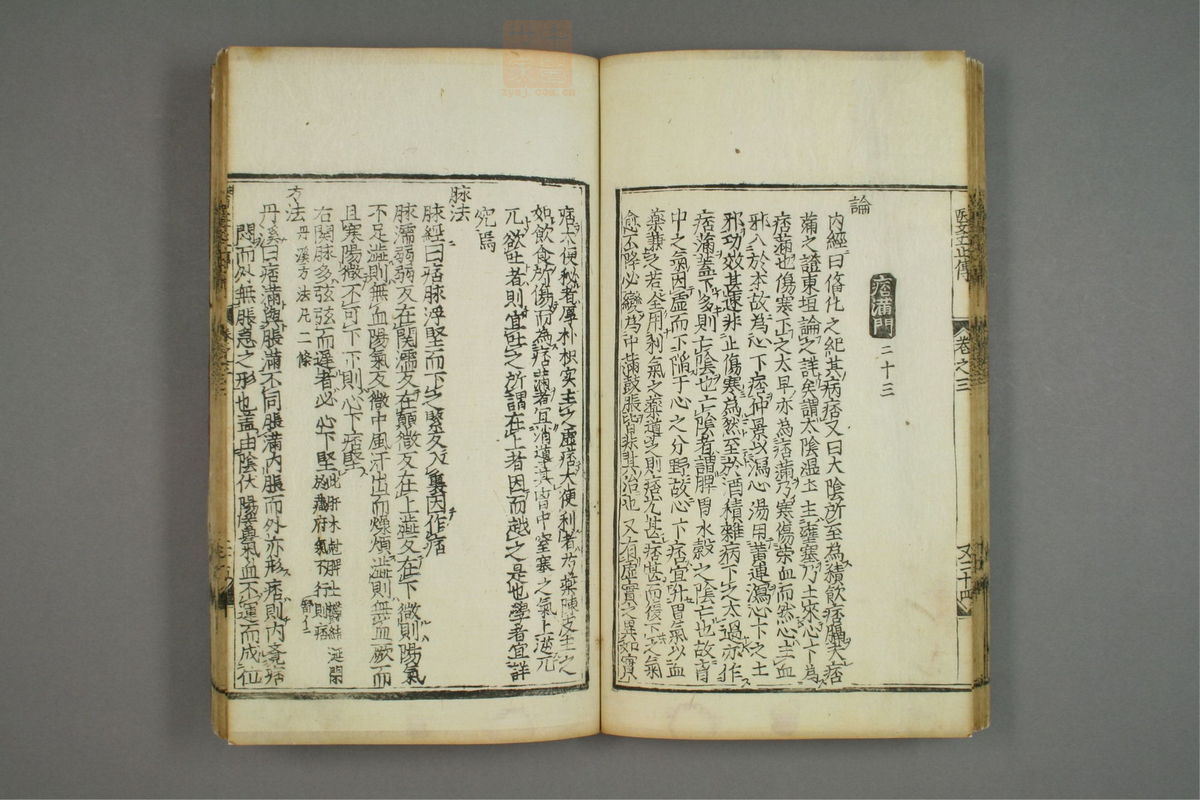 醫學正傳
卷之三
又二十四
痞滿門
二十三
論
內經曰備化之紀其病痞又曰太陰所至為積飲痞膈夫痞
滿之證東垣論之詳矣謂太陰濕土主壅塞乃土來心下為
痞滿也傷寒下之太早亦為痞滿乃寒傷榮血而然心主血
邪入於本故為心下痞仲景以瀉心湯用黃連瀉心下之土
邪功效甚速非止傷寒為然至於酒積雜病下之太過亦作
痞滿蓋下多則亡陰也亡陰者謂脾胃水穀之陰亡也故胷
中之氣因虛而下陷于心之分野故心下痞宜升胃氣以血
藥兼之若全用利氣之藥導之則痞尤甚痞甚而復下之氣
愈下降必變為中滿鼓脹皆非其治也又有虛實之異如實
痞大便秘者厚朴枳实主之虛痞大便利者芍藥陳皮主之
如飲食所傷而為痞滿者宜消導其胷中窒塞之氣上逆兀
兀欲吐者則宜吐之所謂在上者因而越之是也學者宜詳
究焉
脉法
脉經曰痞脉浮堅而下之緊反入裏因作痞
脉濡弱弱反在関濡反在顛微反在上澁反在下微則陽氣
不足澁則無血陽氣反微中風汗出而燥煩澁則無血厥而
且寒陽微不可下下則心下痞堅
右関脉多弦弦而遲者必心下堅此肝木尅脾土鬱結涎閉於藏府氣不行則痞
方法丹溪方法凡二條
丹溪曰痞滿與脹滿不同脹滿內脹而外亦形痞則內覺痞
悶而外無脹急之形也蓋由陰伏陽蓄氣血不運而成位